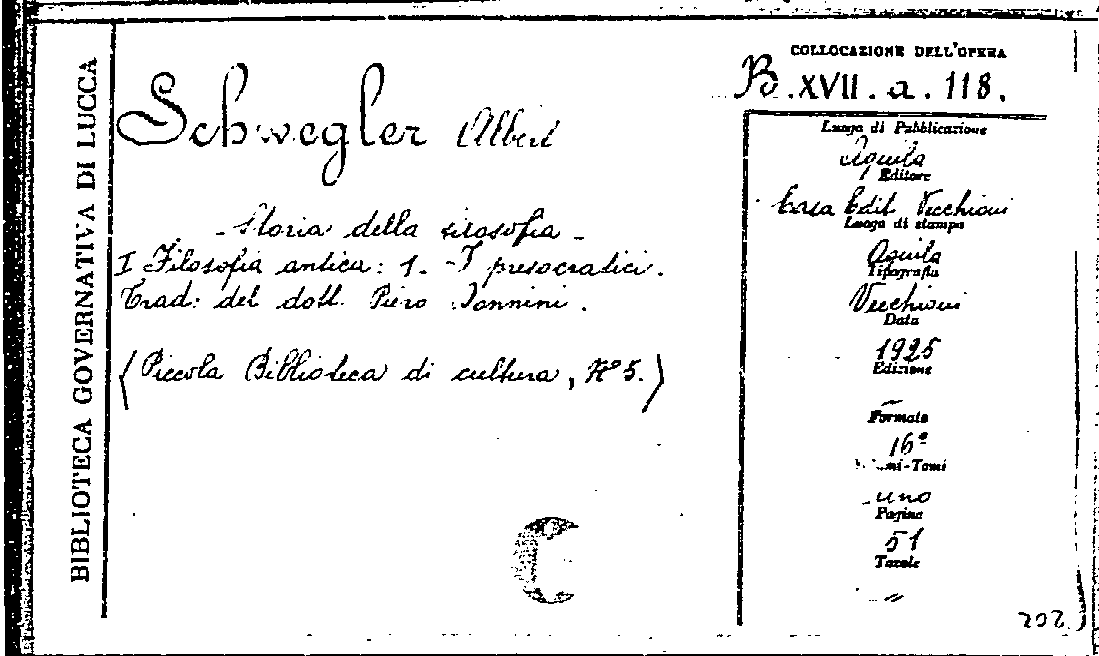 BIBLIOTECA GOVERNATIVA DI LUCCA
Schwegler Albert
- Storia della filosofia -
I Filosofia antica: 1. - I presocratici.
Trad. del dott. Piero Jannini.
(Piccola Biblioteca di cultura, N° 5.)
C
COLLOCAZIONE DELL'OPERA
B. XVII. a. 118.
Luogo di Pubblicazione
Aquila
Editore
Casa Edit. Vecchioni
Luogo di stampa
Aquila
Tipografia
Vecchioni
Data
1925
Edizione
—
Formato
16°
Volumi-Tomi
uno
Pagine
51
Tavole
"
202